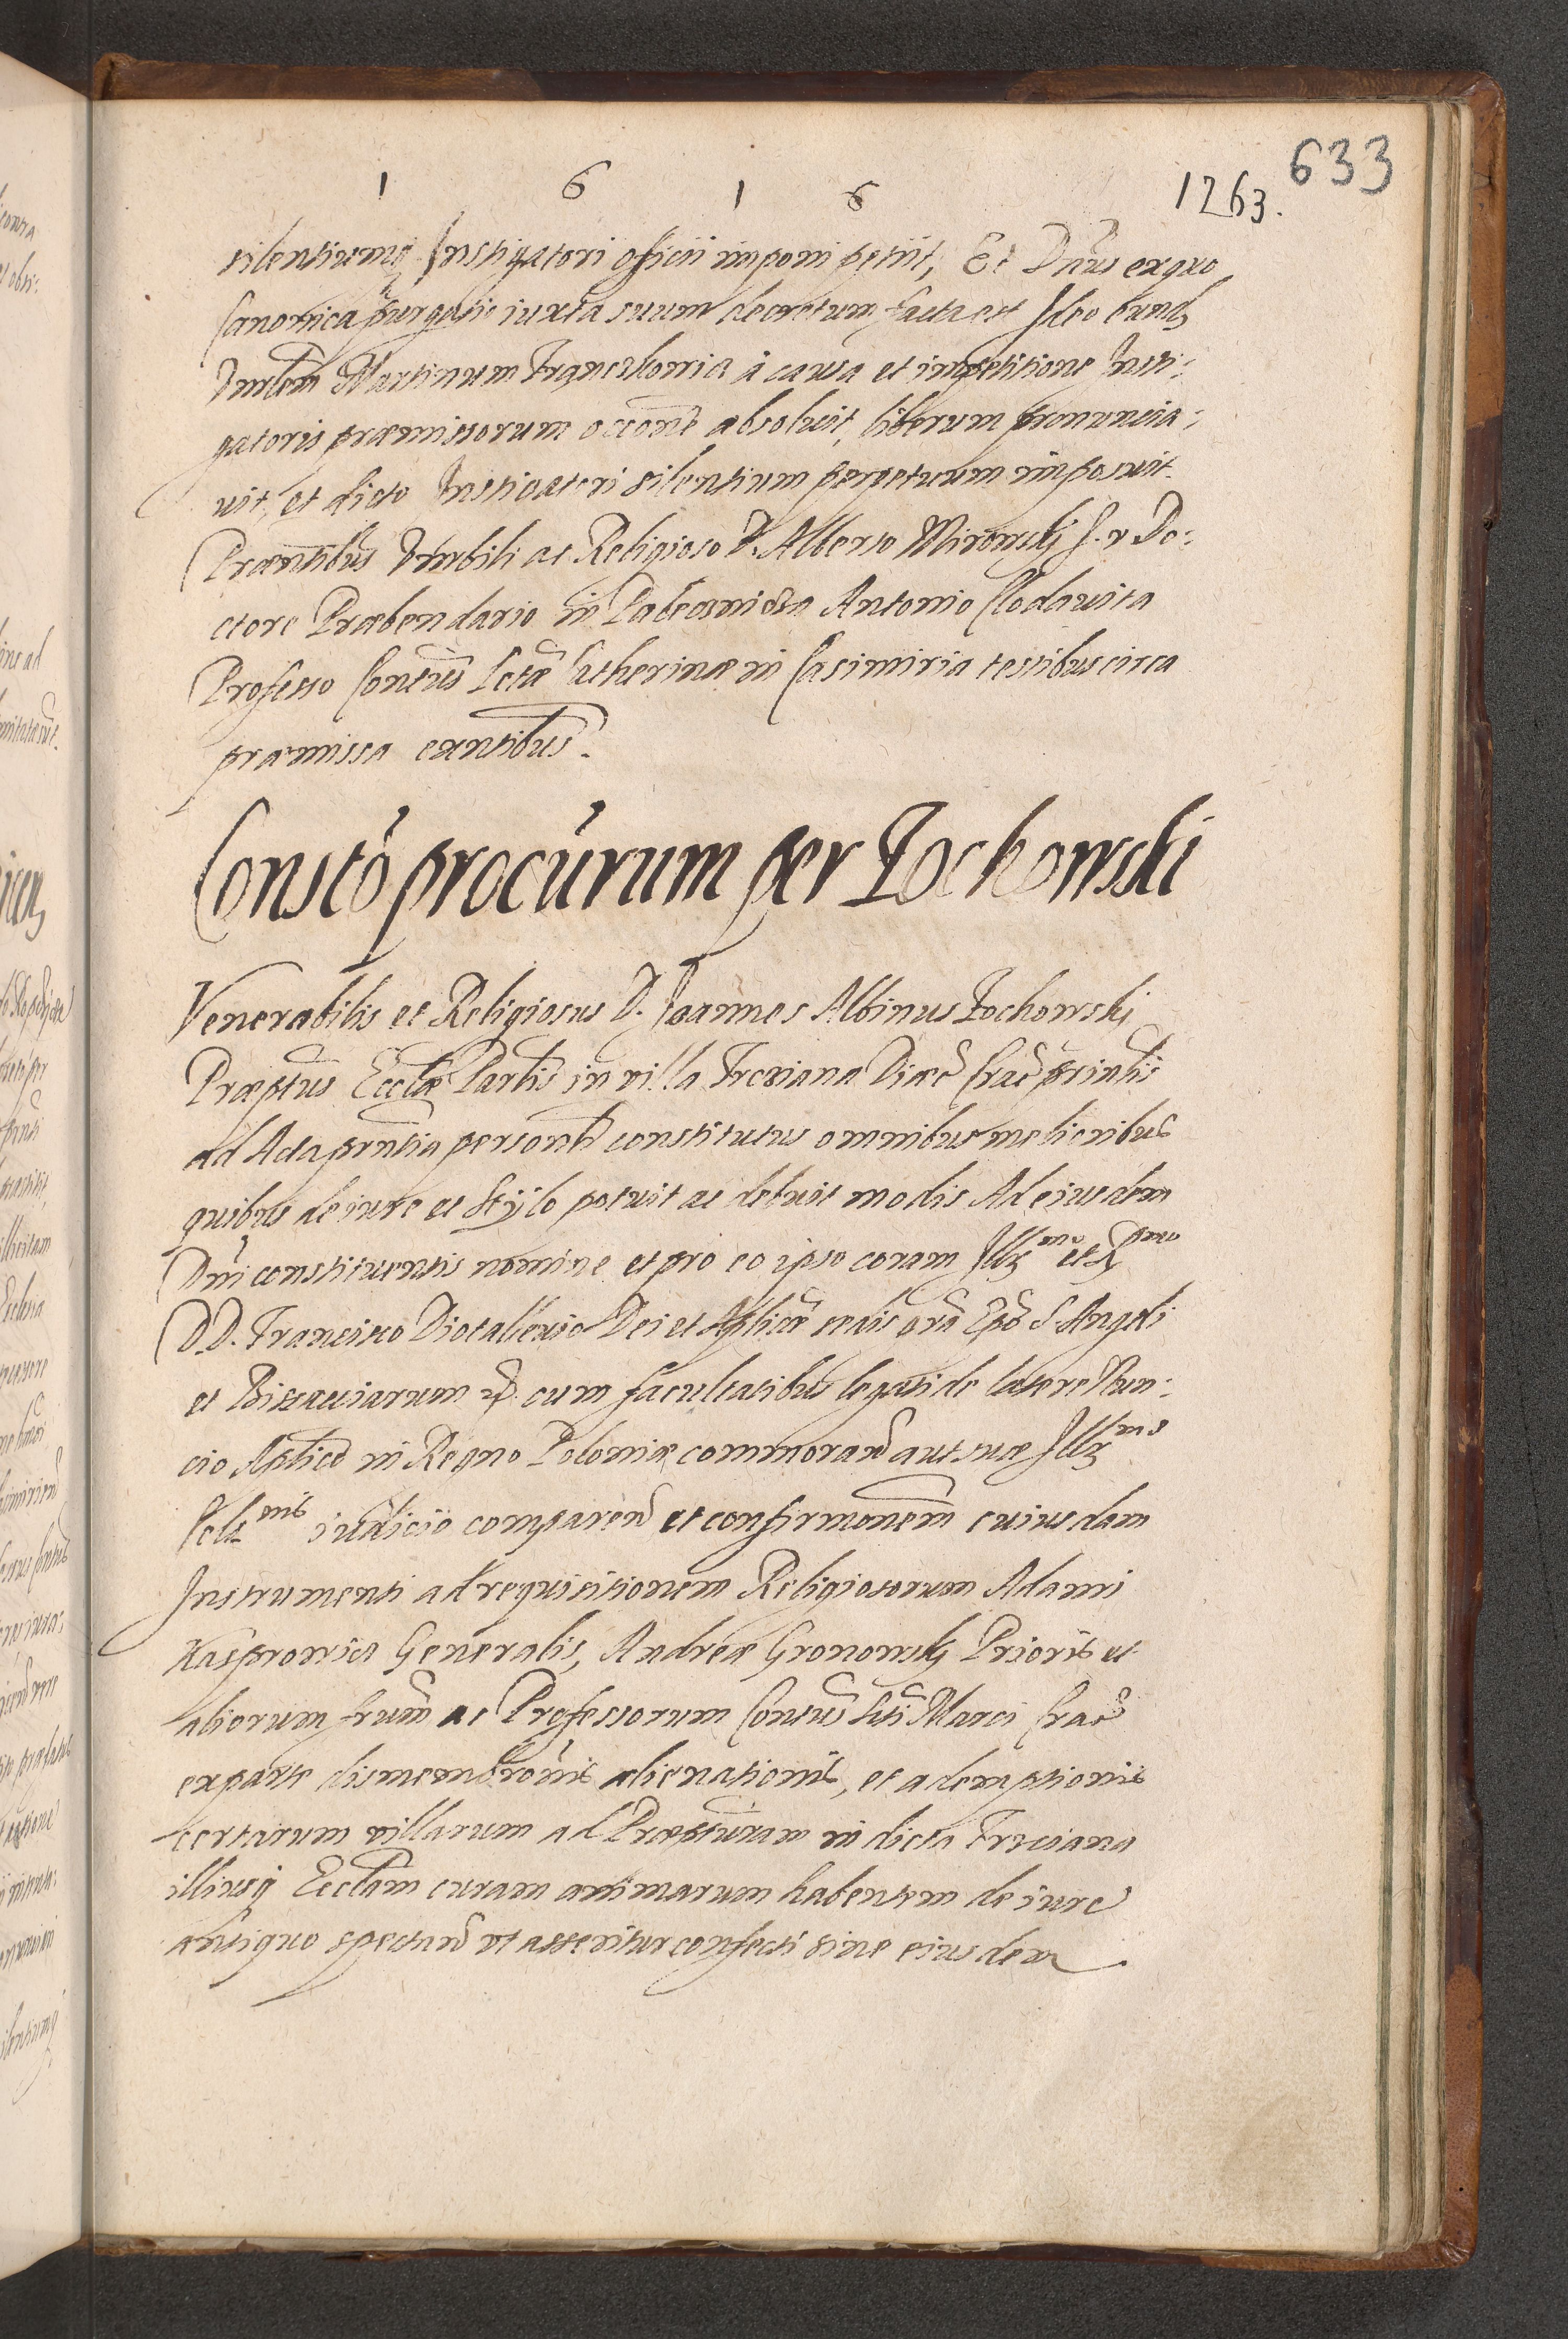 633
1 6 1 6 1263.
silentiumq Instigatori officii imponi petiit, Et Dnus ex quo
Canonica purgatio iuxta suum decretum facta est Ideo eund
Martinum Franczkowic a causa et impetitione Insti:
gatoris præmissorum occone absoluit, liberum pronuncia:
uit, et dicto Instigatori silentium perpetuum imposuit.
Præntibus ac Religioso D. Alberto Mironski J. v Do:
ctore Præbendario in Antonio Clodawita
Professo Contus Sctæ Catherinæ in Casimiria testibus circa
præmissa exntibus.
Constô procurum per Zochowski
Venerabilis et Religiosus D. Joannes Albinus Zochowski
Præptus Ecctæ Partis in villa Trcziana Diæc Crac printis
ad Acta prntia personlr constitutus omnibus melioribus
quibus de iure et stylo potuit ac debuit modis Ad eiusdem
Dni constituentis nomine et pro eo ipso coram Illr mo et
D. D. Francisco Diotalleuio Dei et Aplicæ sedis gra Epo S. Angeli
et Bisacciarum cum facultatibus legati de latere Nun:
cio Aplico in Regno Poloniæ commoran aut suæ Illr mæ
Cels nis iudicio comparen et confirmonem cuiusdam
Instrumenti ad requisitionem Religiosorum Adami
Kasprowicz Generalis, Andreæ Gronowski Prioris et
aliorum frum ac Professorum Contus Scti Marci Crac
ex parte dismembronis alienationis, et ademptionis
certarum villarum ad Præpturam in dicta Trzciana
illiusq Ecctam curam animarum habentem de iure
antiquo spectan vt asseritur confecti siue eiusdem